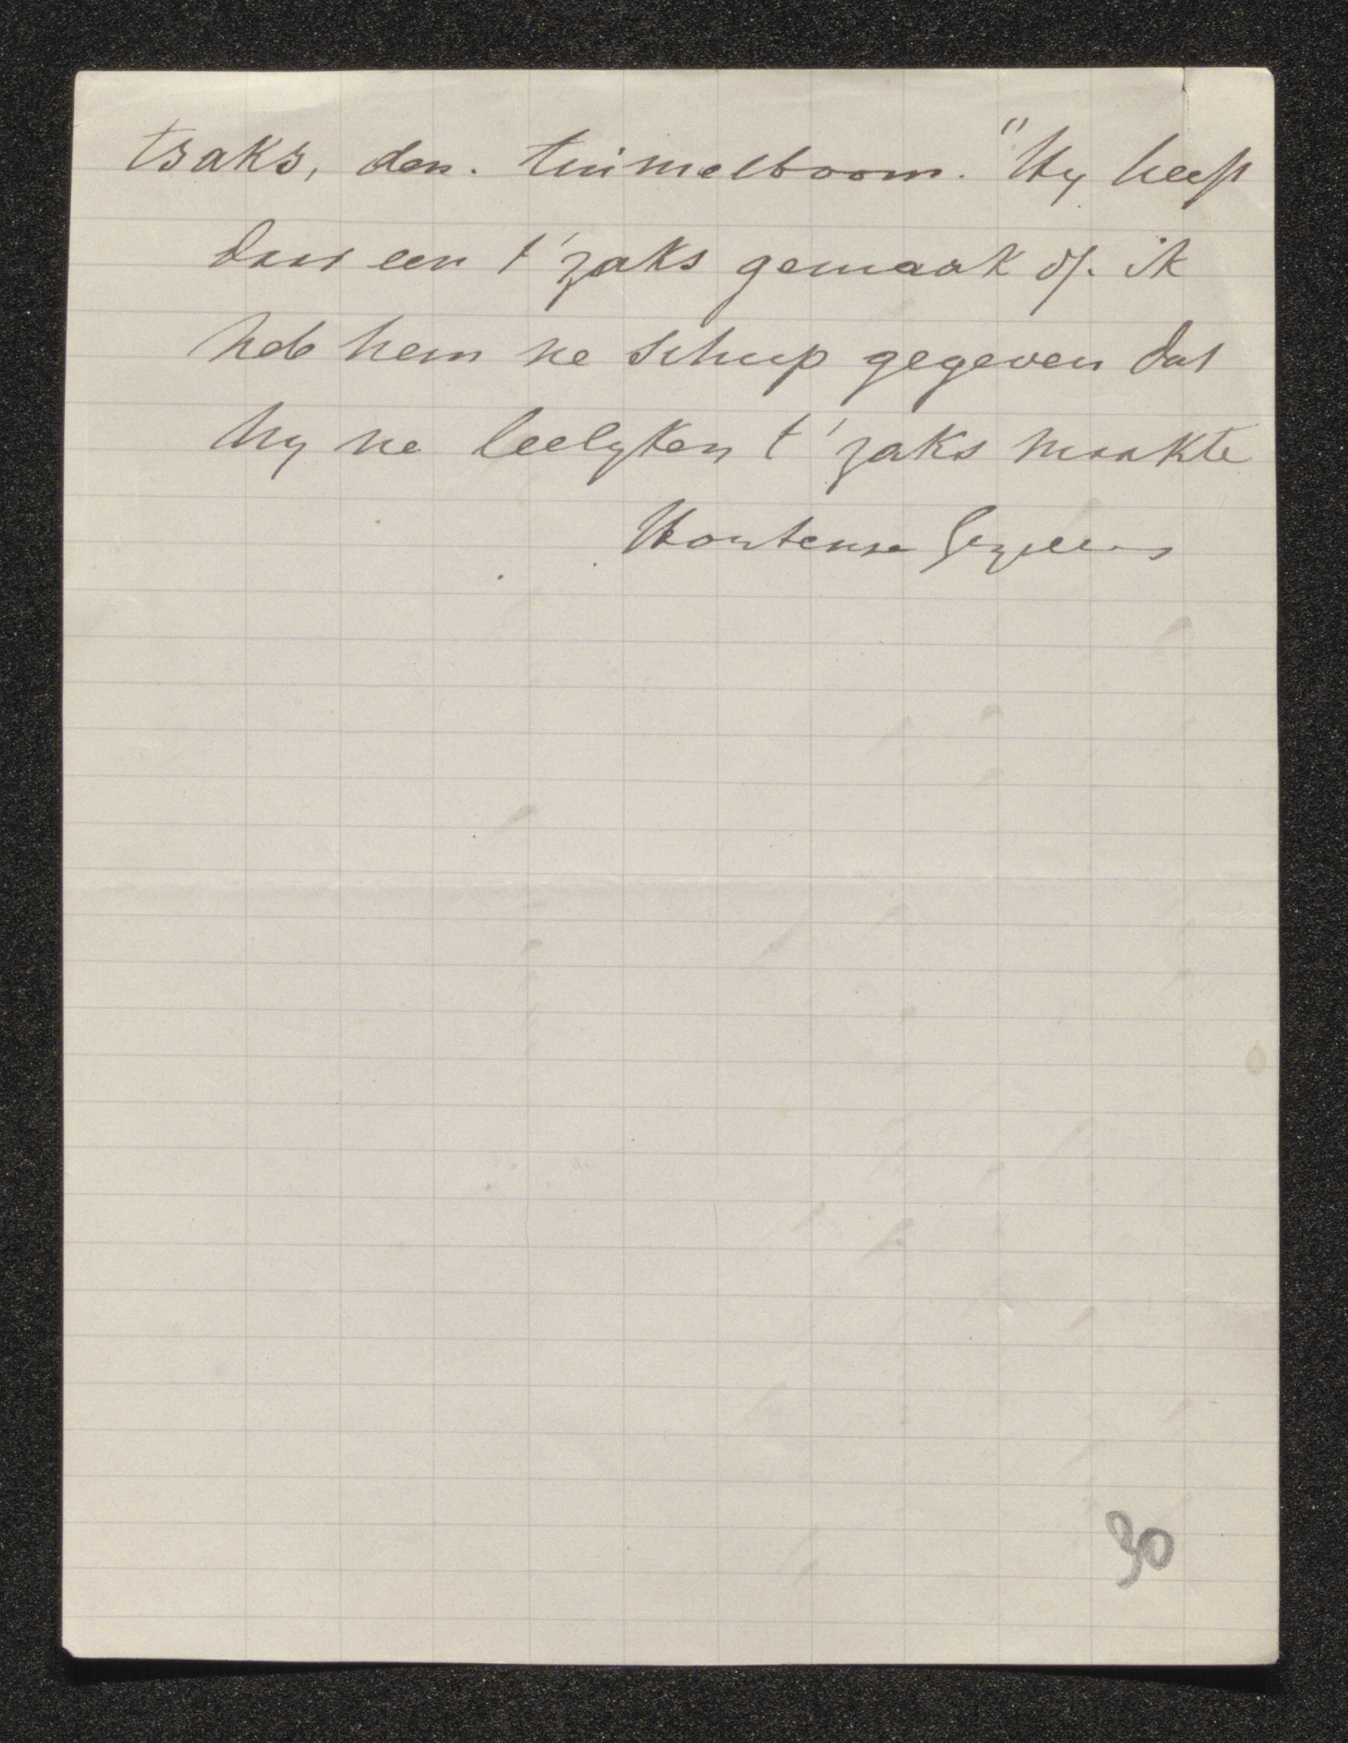 tsaks, den. tuimelboom. "Hy heeft
daar een t'zaks gemaak of. ik
heb hem ne schup gegeven dat
hy ne leelyken t'zaks maakte
Hortense
30